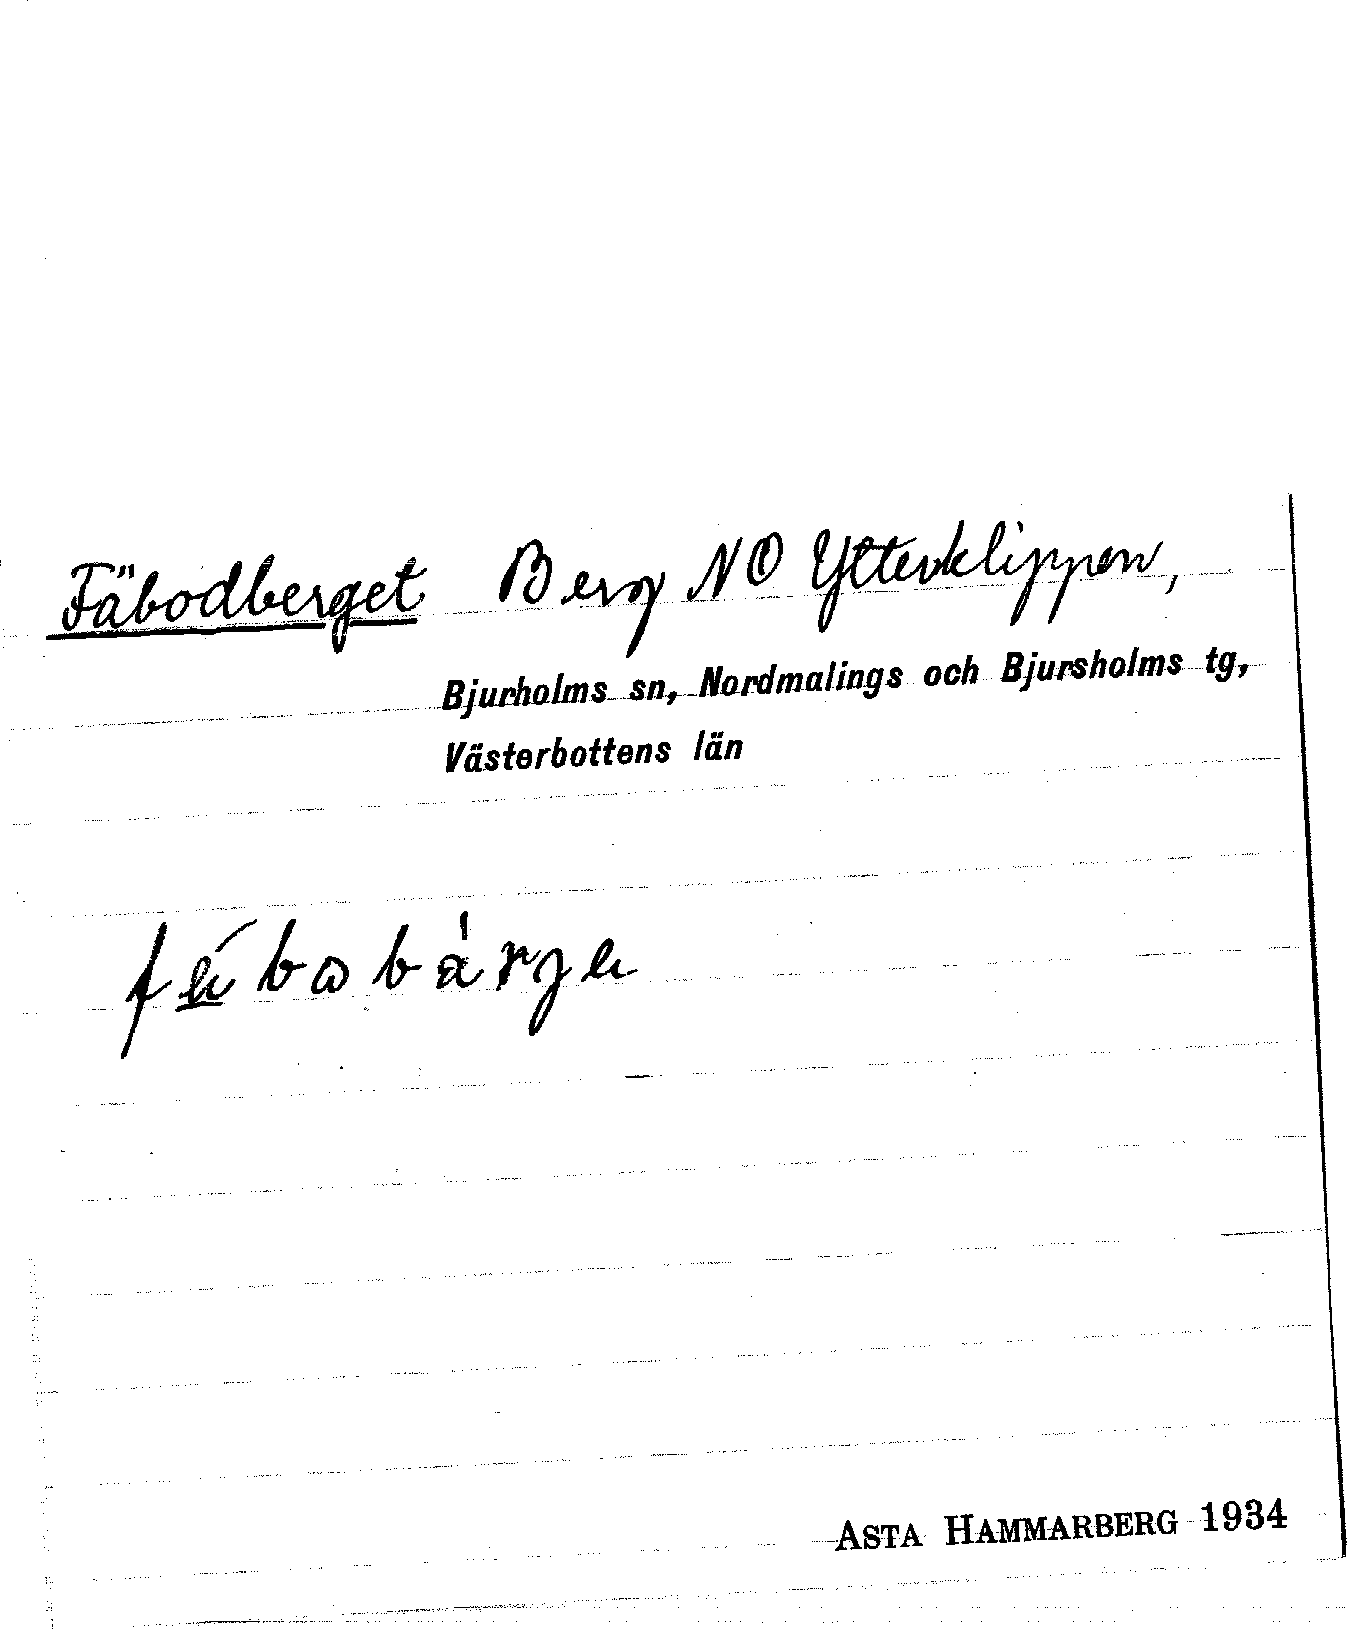 Fäbodberget Berg NO Ytterklippen,
Bjurholms sn, Nordmalings och Bjursholms tg,
Västerbottens län
ASTA HAMMARBERG 1934